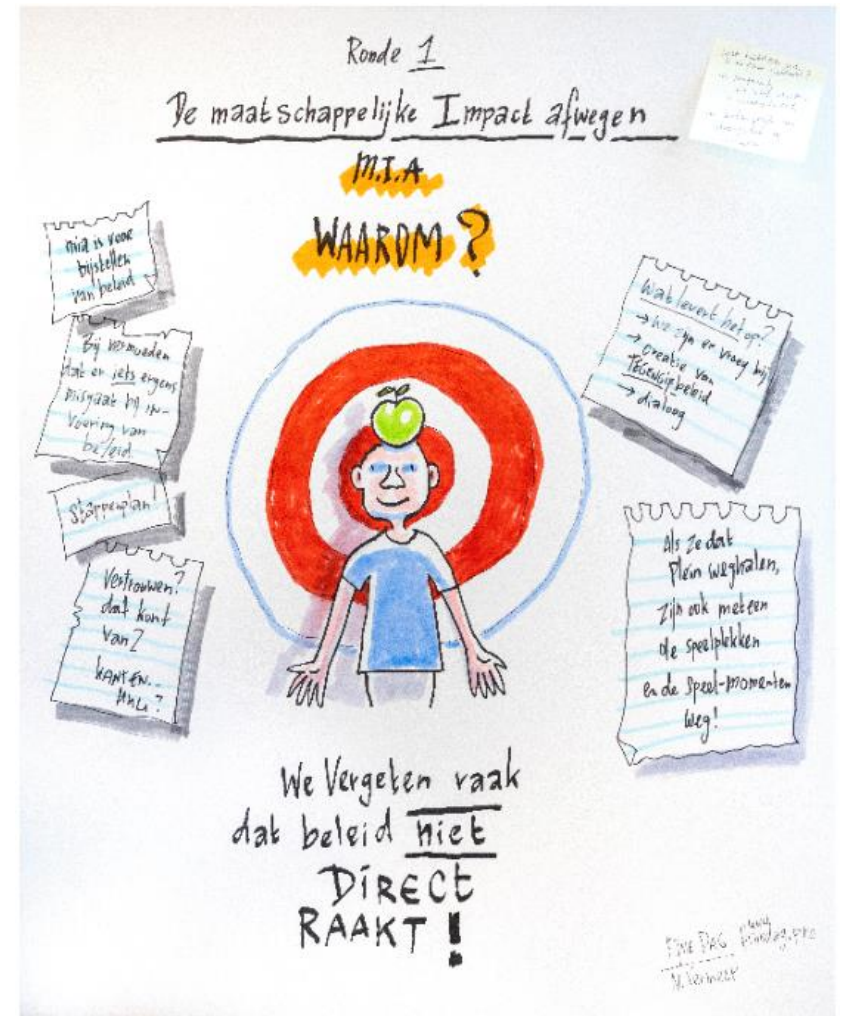 Ronde 1
De maatschappelijke Impact afwegen
M.I.A
WAAROM?
mia is voor
bijstellen
van beleid
Bij vermoeden
dat er iets ergens
misgaat bij in-
voering van
beleid
stappenplan
Vertrouwen?
dat komt
van 2
KANTEN..
Wat levert het op?
→ we zijn er vroeg bij
→ creatie van
beleid
→ dialoog
Als ze dat
plein weghalen,
zijn ook meteen
de speelplekken
en de speel-momenten
weg!
We Vergeten vaak
dat beleid niet
DIRECT
RAAKT!